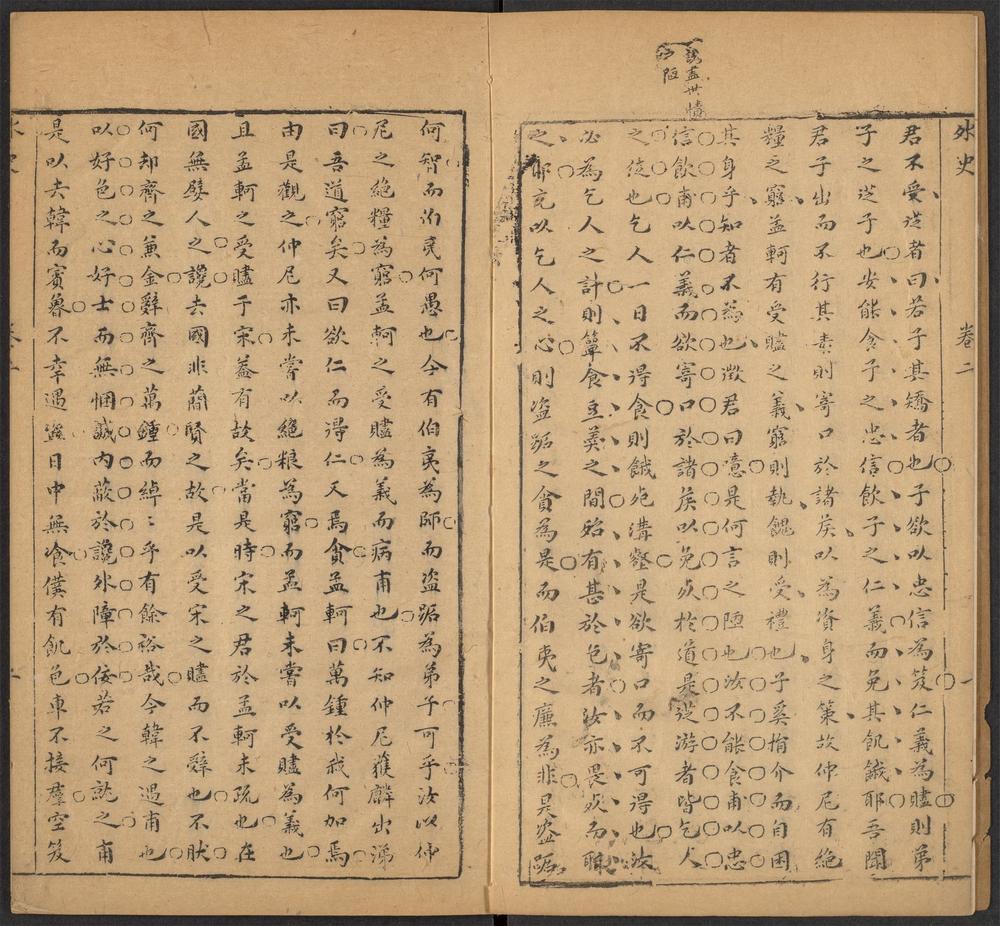 外史 卷二 一
君不受從者曰若子其矯者也子欲以忠信為笈仁義為贐則弟
子之從子也安能食子之忠信飲子之仁義而免其飢餓耶吾聞
君子出而不行其素則寄口於諸矦以為資身之策故仲尼有絕
糧之窮孟軻有受贐之義窮則執餽則受禮也子奚拘介而自困
其身乎知者不為也徵君曰噫是何言之陋也汝不能食甫以忠
信飲甫以仁義而欲寄口於諸矦以免於道是從游者皆乞人
之徒也乞人一日不得食則餓死溝壑是欲寄口而不可得也汝
必為乞人之計則簞食豆羹之間殆有甚於色者汝亦畏而
之耶充以乞人之心則盜跖之貪為是而伯夷之廉為非是盜跖
何智而伯夷何愚也仝有伯夷為師而盜跖為弟子可乎汝以仲
尼之絕糧為窮孟軻之受贐為義而病甫也不知仲尼獲麟出涕
曰吾道窮矣又曰欲仁而得仁又焉貪孟軻曰萬鍾於我何加焉
由是觀之仲尼亦未嘗以絕粮為窮而孟軻未嘗以受贐為義也
且孟軻之受贐于宋葢有故矣當是時宋之君於孟軻未疏也在
國無嬖人之讒去國非蕳賢之故是以受宋之贐而不辭也不肰
何却齊之兼金辭齊之萬鍾而綽〻乎有餘裕哉今韓之遇甫也
以好色之心好士而無悃誠內蔽於讒外障於佞若之何就之甫
是以去韓而賓魯不幸遇盜日中無飡僕有飢色車不接羣空笈